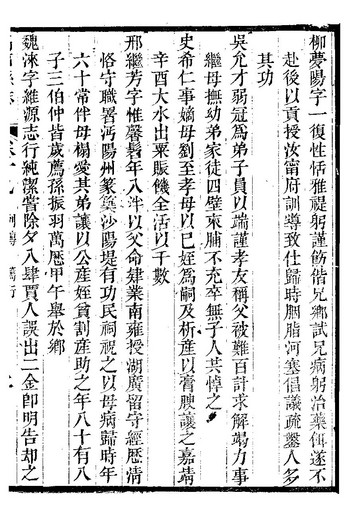 柳夢陽字一復性恬雅禔躬謹飭偕兄鄉試兄病躬治藥餌遂不
赴後以貢授汝甯府訓導致仕歸時胭脂河塞倡議疏鑿人多
其功
吳允才弱冠爲弟子員以端謹孝友稱父被難百計求解竭力事
繼母撫幼弟家徒四壁束脯不充卒無子人共悼之
史希仁事嫡母劉至孝母以已姪爲嗣及析產以膏腴讓之嘉靖
辛酉大水出粟賑饑全活以千數
邢繼芳字惟馨髫年入泮以父命肄業南雍授湖廣留守經歷清
恪守職署沔陽州篆築沙陽堤有功民祠祝之以母病歸時年
六十常伴母榻愛其弟讓以公產姪貧割產助之年八十有八
子三伯仲皆歲薦孫振羽萬歷甲午舉於鄉
魏淶字維源志行純潔嘗除夕入肆賈人誤出二金卽明告却之